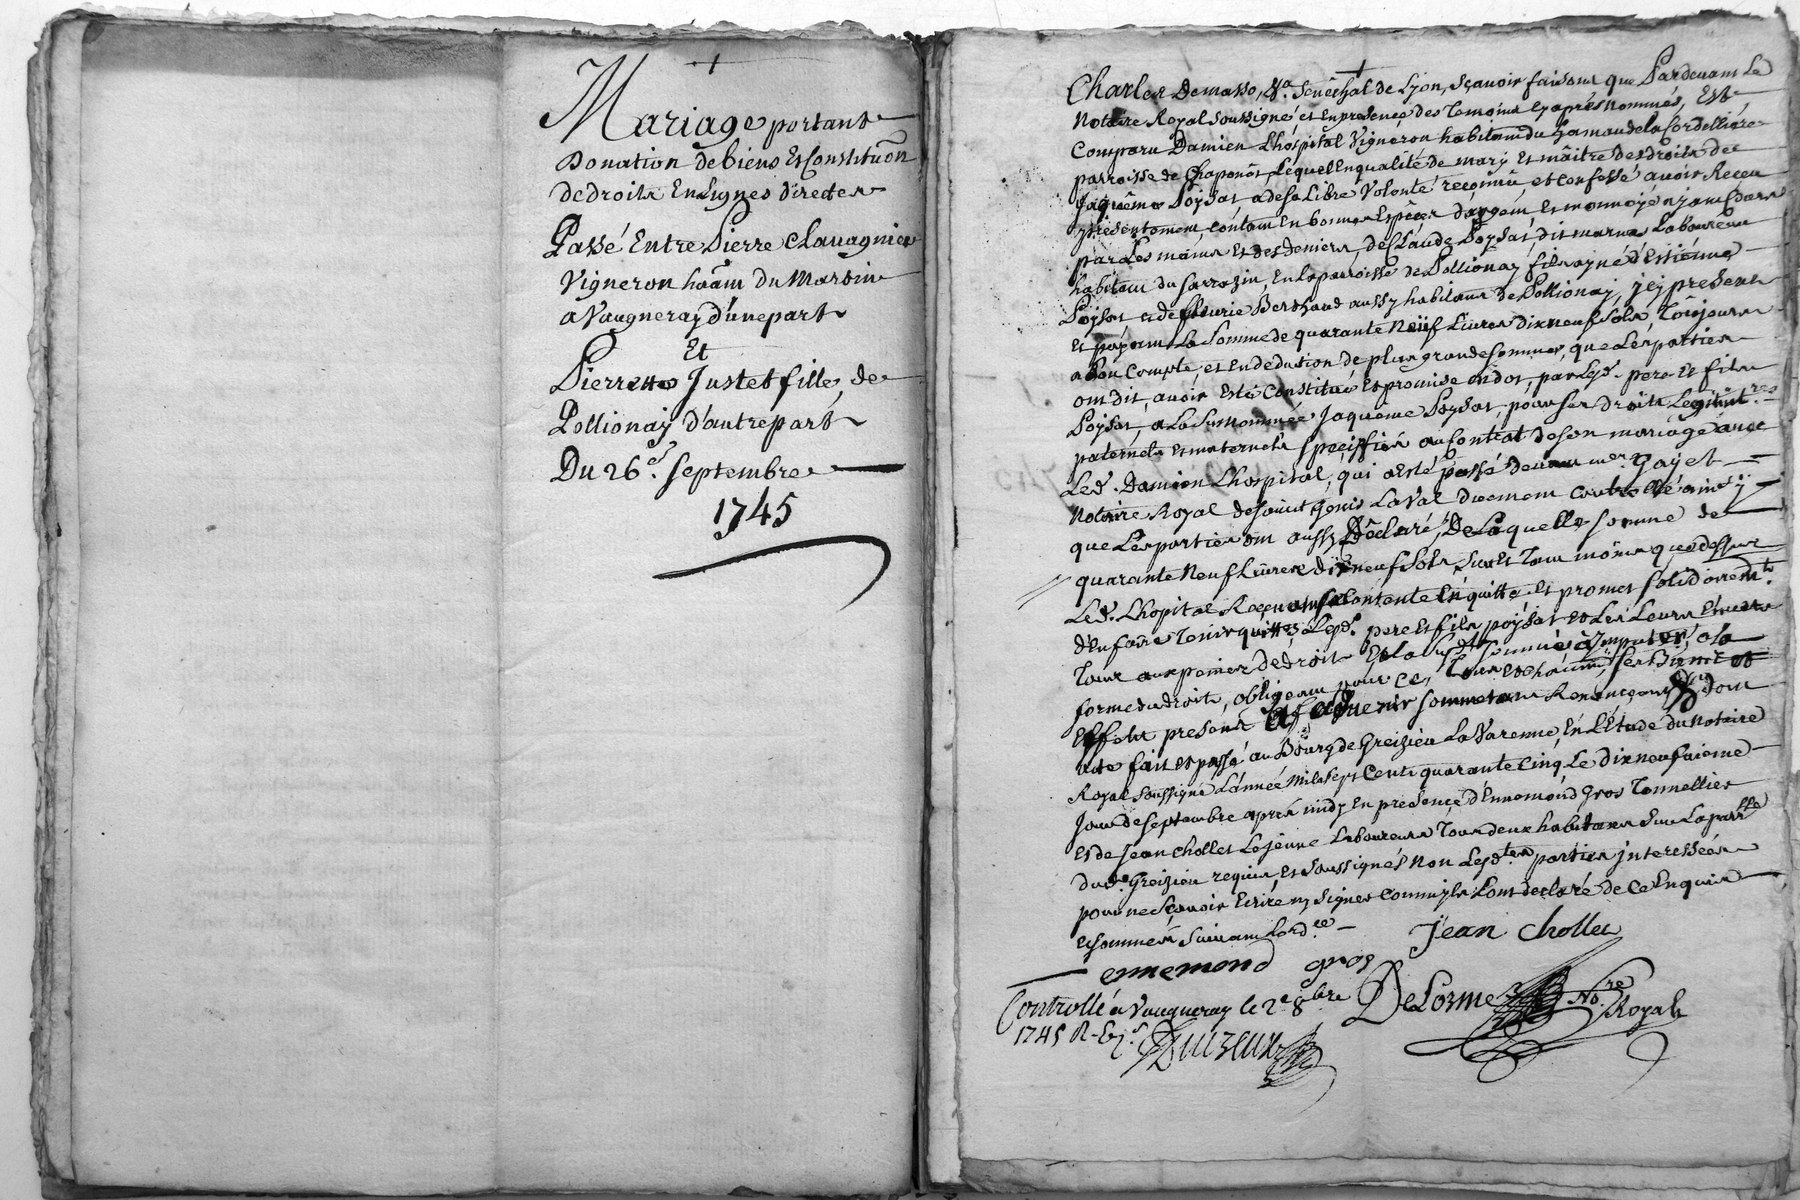 Mariage portant
Donation de biens Et Constituõn
de droits En Lignes directes
Passé Entre Pierre Clavagnier
Vigneron hãm du Martin
a Vaugneray d'une part
Et
Pierrette Justet fille, de
Pollionay d'autre part
Du 26.e Septembre
1745
Charles Demasso, Sénéchal de Lyon, Sçavoir faisons que Pardevant Le
Notaire Royal Soussigné et En presence des Temoins Cy après Nommés, Est
Comparu Damien Lhospital Vigneron habitant du hameau de la Cordelliere
parroisse de Chaponost Lequel En qualité de mary Et maitre des droits de
Jaqueme Poysat a de sa Libre Volonté reconnu et confessé avoir Receu
presentement, contant En bonnes Espèces d'argent, Et monnoye ayant Cours
par Les mains Et des deniers, de Claude Poysat, dit marna Laboureur
habitant du Sarrazin, En la parroisse de Pollionay fils ayné d'Estienne
Poysat et de fleurie Berthaud aussy habitans de Pollionay, jcy present
Et payant La Somme de quarante Neuf Livres dix neuf Sols, Toûjours
a bon Compte, et En déduction de plus grande Somme, que Les parties
ont dit, avoir Esté Constitué Et promise En dot, par Les d. pere Et fils
Poysat, a La Susnommée Jaqueme Poysat, pour Ses droits Legitimes
paternels Et maternels Speciffiés au Contrat de Son mariage avec
Led. Damien Lhospital, qui a Esté passé devant me. Gayet
Notaire Royal de Saint Genis Laval Duement Controllé ainsy
que Les parties ont aussy Déclaré, De Laquelle Somme de
quarante Neuf Livres dix neuf Sols, Led.
Led. Lhopital Se Contente En quitte, Et promet Solidairemt.
d'En faire Tenir quittes Lesd. pere Et fils poysat et Les Leurs Envers
Tous aux peines de droit Et la Susd. Somme à Imputer, a la
forme du droit, obligeant pour Ce, Ses Biens Et
Effets presents Et advenir Soummettant Renonçant & dont
acte fait et passé au Bourg de Greizieu La Varenne, En L'Étude du Notaire
Royal Soussigné L'année Mil Sept Cents quarante Cinq Le dix neufvieme
Jour de Septembre après midy En presence d'Ennemond Gros Tonnellier
Et de Jean Chollet Le jeune Laboureur Tous deux habitans Sur La parr.sse
dud. Greizieu requis, Et Soussignés Non Lesd.tes parties interessées
pour ne Sçavoir Ecrire ny Signer Comm'ils L'ont declaré de Ce Enquis
Et Sommés Suivant L'ord.ce
Jean Chollet
ennemond gros
DeLorme No.re Royal
Controllé a Vaugneray le 2e 8bre
1745